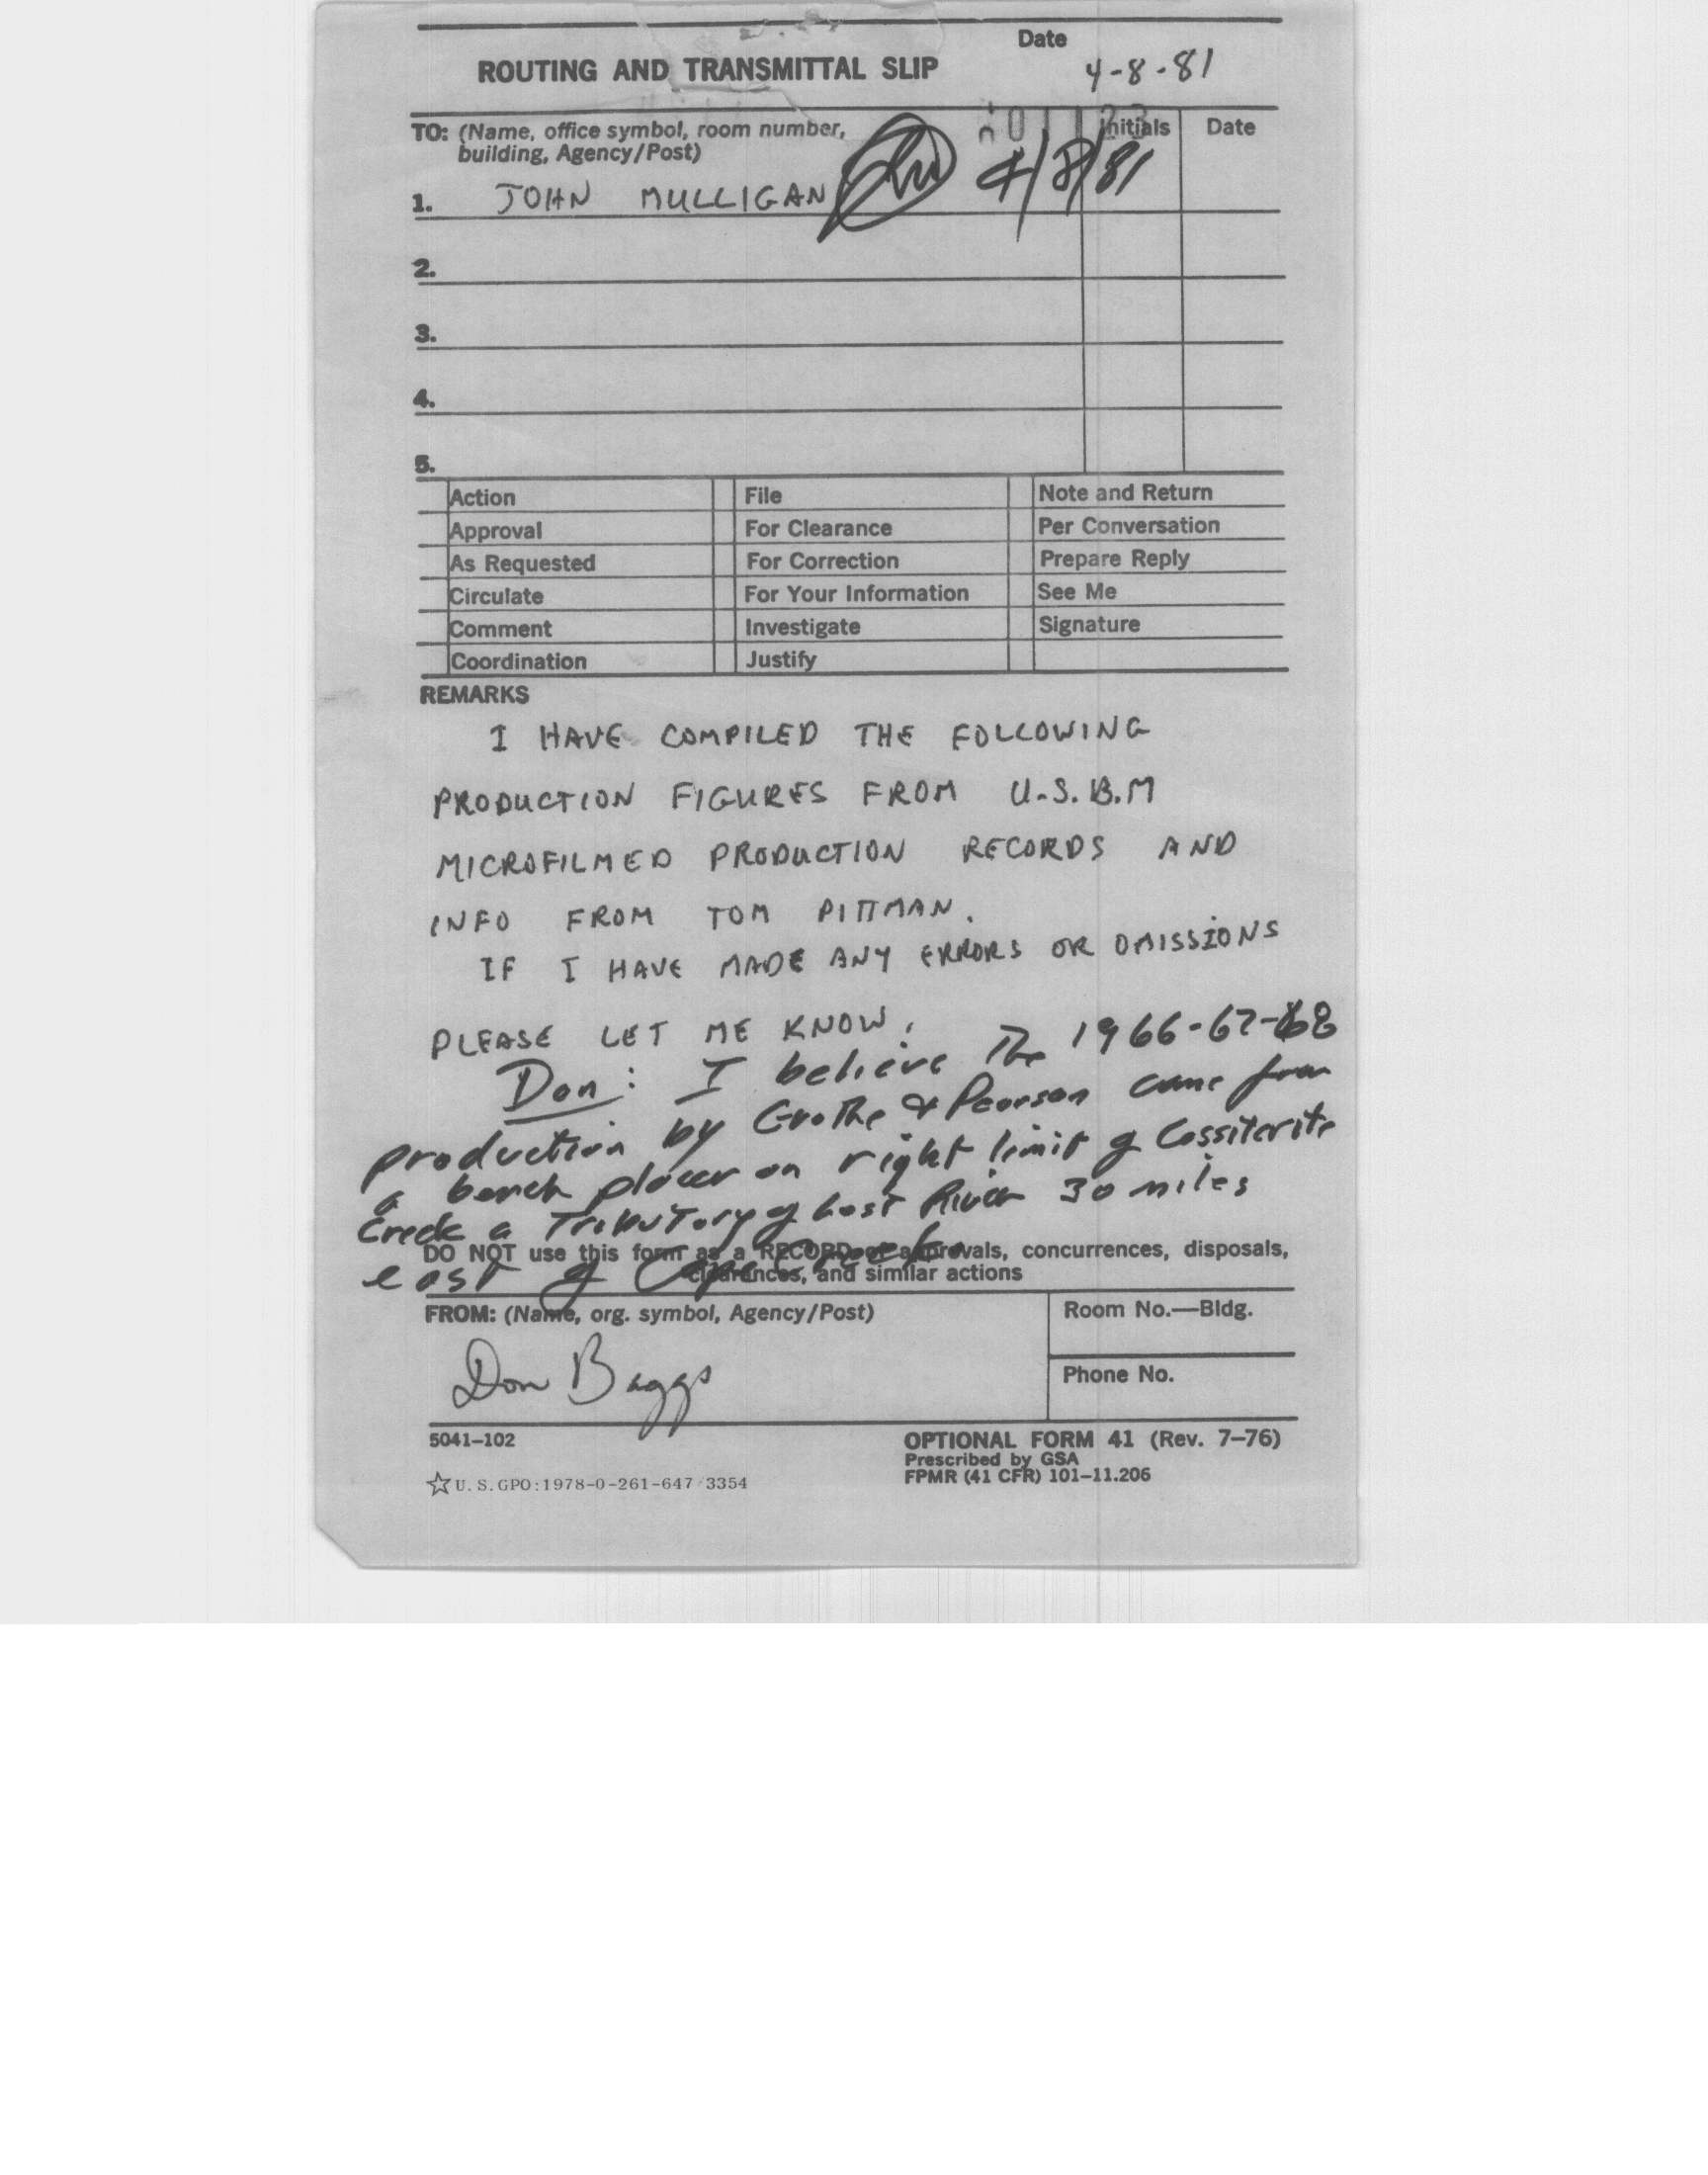 Date
ROUTING AND TRANSMITTAL SLIP
4-8-81
TO: (Name, office symbol, room number,
building, Agency/Post)
Initials
Date
1. JOHN MULLIGAN 4/8/81
2.
3.
4.
5.
Action File Note and Return
Approval For Clearance Per Conversation
As Requested For Correction Prepare Reply
Circulate For Your Information See Me
Comment Investigate Signature
Coordination Justify
REMARKS
I HAVE COMPILED THE FOLLOWING
PRODUCTION FIGURES FROM U.S.B.M
MICROFILMED PRODUCTION RECORDS AND
INFO FROM TOM PITTMAN.
IF I HAVE MADE ANY ERRORS OR OMISSIONS
PLEASE LET ME KNOW.
Don: I believe The 1966-67-68
production by Grothe & Pearson came from
a bench placer on right limit of Cassiterite
Creek a Tributory of Lost River 30 miles
east of Cape Creek
DO NOT use this form as a RECORD of approvals, concurrences, disposals,
clearances, and similar actions
FROM: (Name, org. symbol, Agency/Post)
Room No.—Bldg.
Don Baggs
Phone No.
5041-102
OPTIONAL FORM 41 (Rev. 7-76)
Prescribed by GSA
FPMR (41 CFR) 101-11.206
☆ U.S.GPO:1978-0-261-647/3354